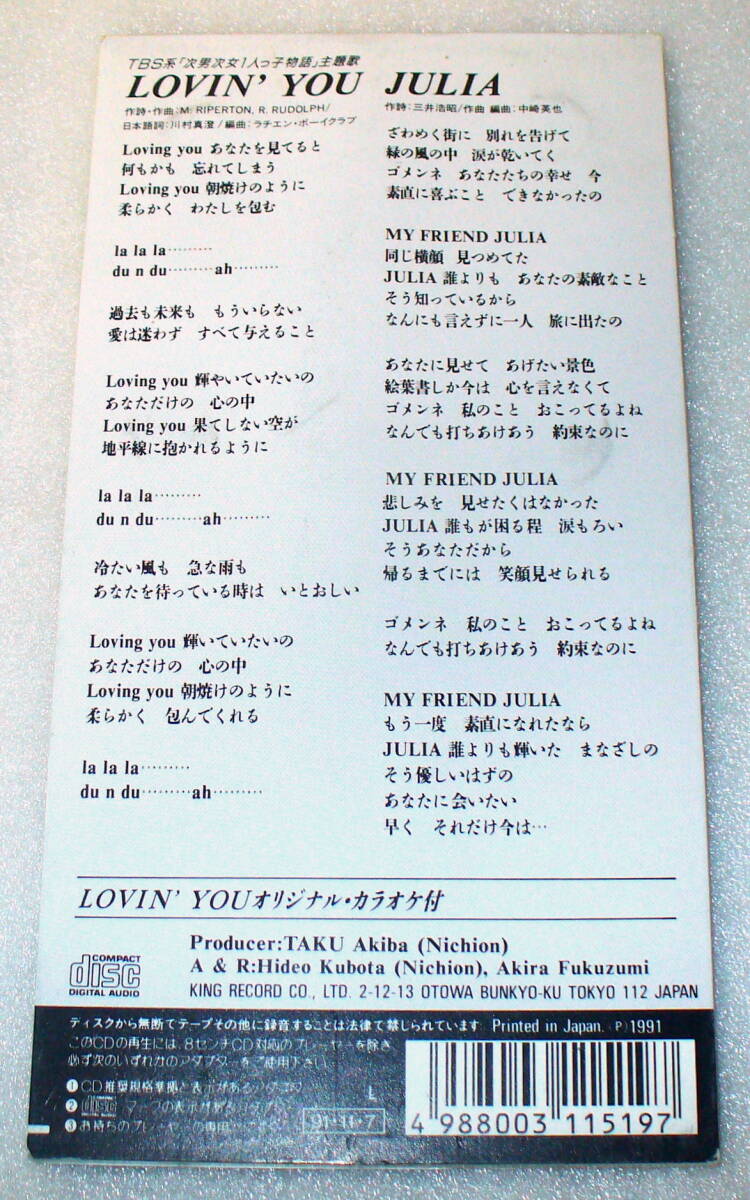 TBS系「次男次女1人っ子物語」主題歌
LOVIN' YOU
作詩・作曲:M. RIPERTON, R. RUDOLPH/
日本語詞:川村真澄/編曲:ラチエン・ボーイクラブ
Loving you あなたを見てると
何もかも 忘れてしまう
Loving you 朝焼けのように
柔らかく わたしを包む
la la la………
du n du………ah………
過去も未来も もういらない
愛は迷わず すべて与えること
Loving you 輝やいていたいの
あなただけの 心の中
Loving you 果てしない空が
地平線に抱かれるように
la la la………
du n du………ah………
冷たい風も 急な雨も
あなたを待っている時は いとおしい
Loving you 輝いていたいの
あなただけの 心の中
Loving you 朝焼けのように
柔らかく 包んでくれる
la la la………
du n du………ah………
JULIA
作詩:三井浩昭/作曲 編曲:中崎英也
ざわめく街に 別れを告げて
緑の風の中 涙が乾いてく
ゴメンネ あなたたちの幸せ 今
素直に喜ぶこと できなかったの
MY FRIEND JULIA
同じ横顔 見つめてた
JULIA 誰よりも あなたの素敵なこと
そう知っているから
なんにも言えずに一人 旅に出たの
あなたに見せて あげたい景色
絵葉書しか今は 心を言えなくて
ゴメンネ 私のこと おこってるよね
なんでも打ちあけあう 約束なのに
MY FRIEND JULIA
悲しみを 見せたくはなかった
JULIA 誰もが困る程 涙もろい
そうあなただから
帰るまでには 笑顔見せられる
ゴメンネ 私のこと おこってるよね
なんでも打ちあけあう 約束なのに
MY FRIEND JULIA
もう一度 素直になれたなら
JULIA 誰よりも輝いた まなざしの
そう優しいはずの
あなたに会いたい
早く それだけ今は…
LOVIN' YOUオリジナル・カラオケ付
COMPACT
disc
DIGITAL AUDIO
Producer:TAKU Akiba (Nichion)
A & R:Hideo Kubota (Nichion), Akira Fukuzumi
KING RECORD CO., LTD. 2-12-13 OTOWA BUNKYO-KU TOKYO 112 JAPAN
ディスクから無断でテープその他に録音することは法律で禁じられています。Printed in Japan. Ⓟ1991
このCDの再生には、8センチCD対応のプレーヤーを除き
必ず次のいずれかのアダプターをご使用下さい。
①CD推奨規格準拠と表示があるアダプタ
② disc マークの表示がある
③お持ちのプレーヤーの専用
L
91・11・7
4 988003 115197